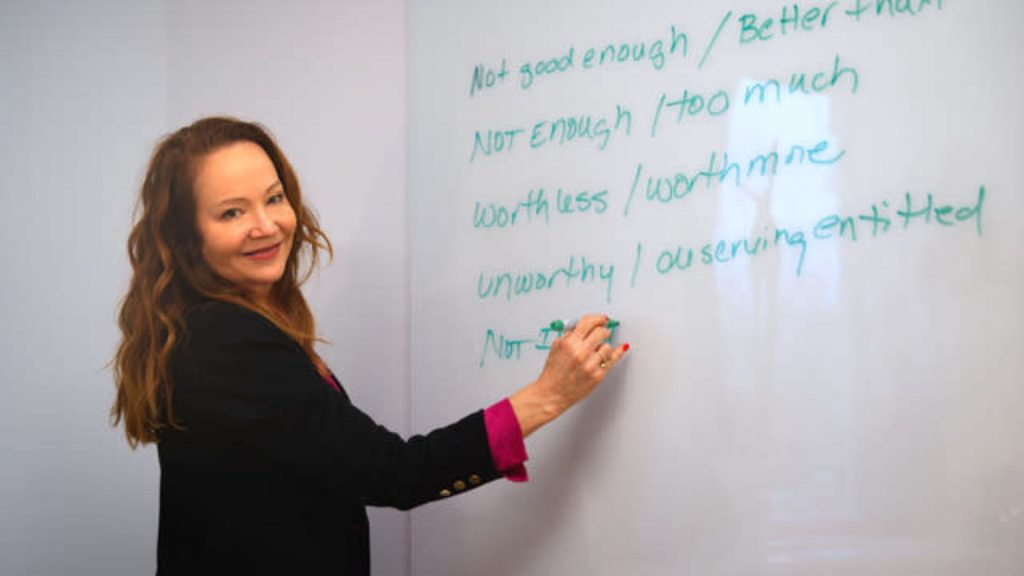 Not good enough / Better than
NOT ENOUGH / too much
worthless / worth more
unworthy / entitled
NOT